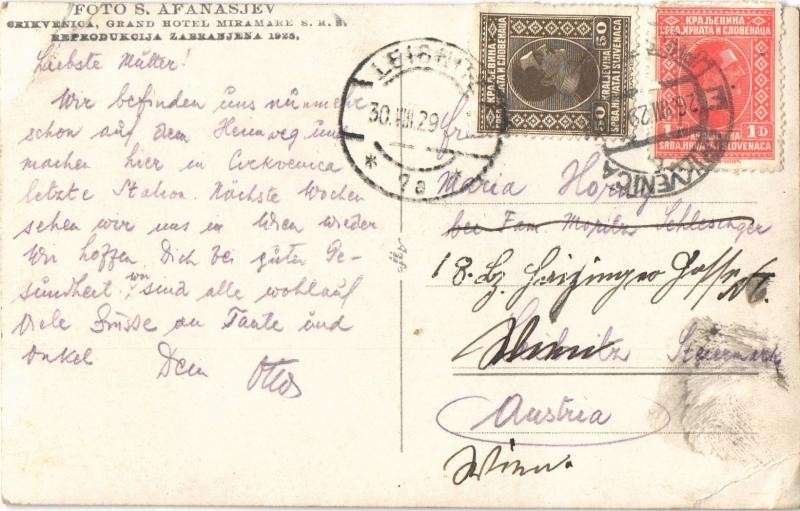 FOTO S. AFANASJEV
CRIKVENICA, GRAND HOTEL MIRAMARE S. H. S.
REPRODUKCIJA ZABRANJENA 1925.
Liebste Mutter!
Wir befinden uns nunmehr
schon auf dem Heimweg und
machen hier in Crikvenica
letzte Station. Nächste Wochen
sehen wir uns in Wien wieder
Wir hoffen Dich bei guter Ge-
sundheit, wir sind alle wohlauf
Viele Grüsse an Tante und
Onkel Dein Otto
КРАЉЕВИНА
СРБА, ХРВАТА И СЛОВЕНАЦА
50 50
KRALJEVINA
SRBA, HRVATA I SLOVENACA
КРАЉЕВИНА
СРБА, ХРВАТА И СЛОВЕНАЦА
1 1 D
KRALJEVINA
SRBA, HRVATA I SLOVENACA
LEIBNITZ
30.VIII.29
* 7a *
26.VIII.29
CRIKVENICA
Frau
Maria
bei Fam. Moritz Schlesinger
18. Bz.
Wien
Leibnitz Steiermark
Austria
Wien